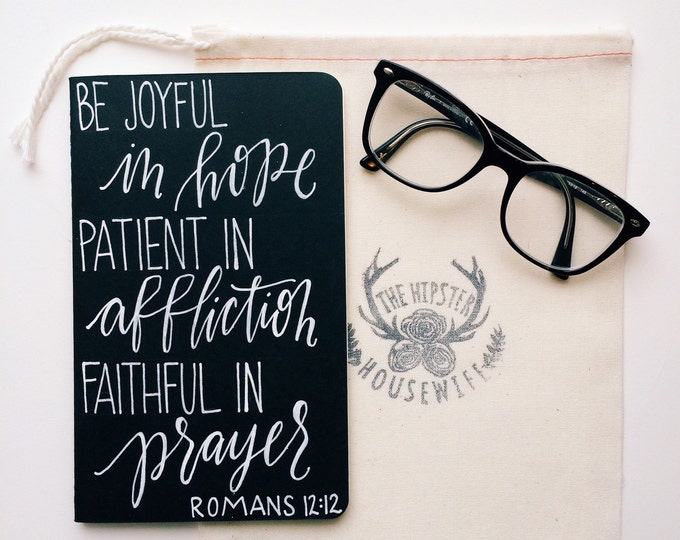 BE JOYFUL
in hope
PATIENT IN
affliction
FAITHFUL IN
prayer
ROMANS 12:12
THE HIPSTER
HOUSEWIFE